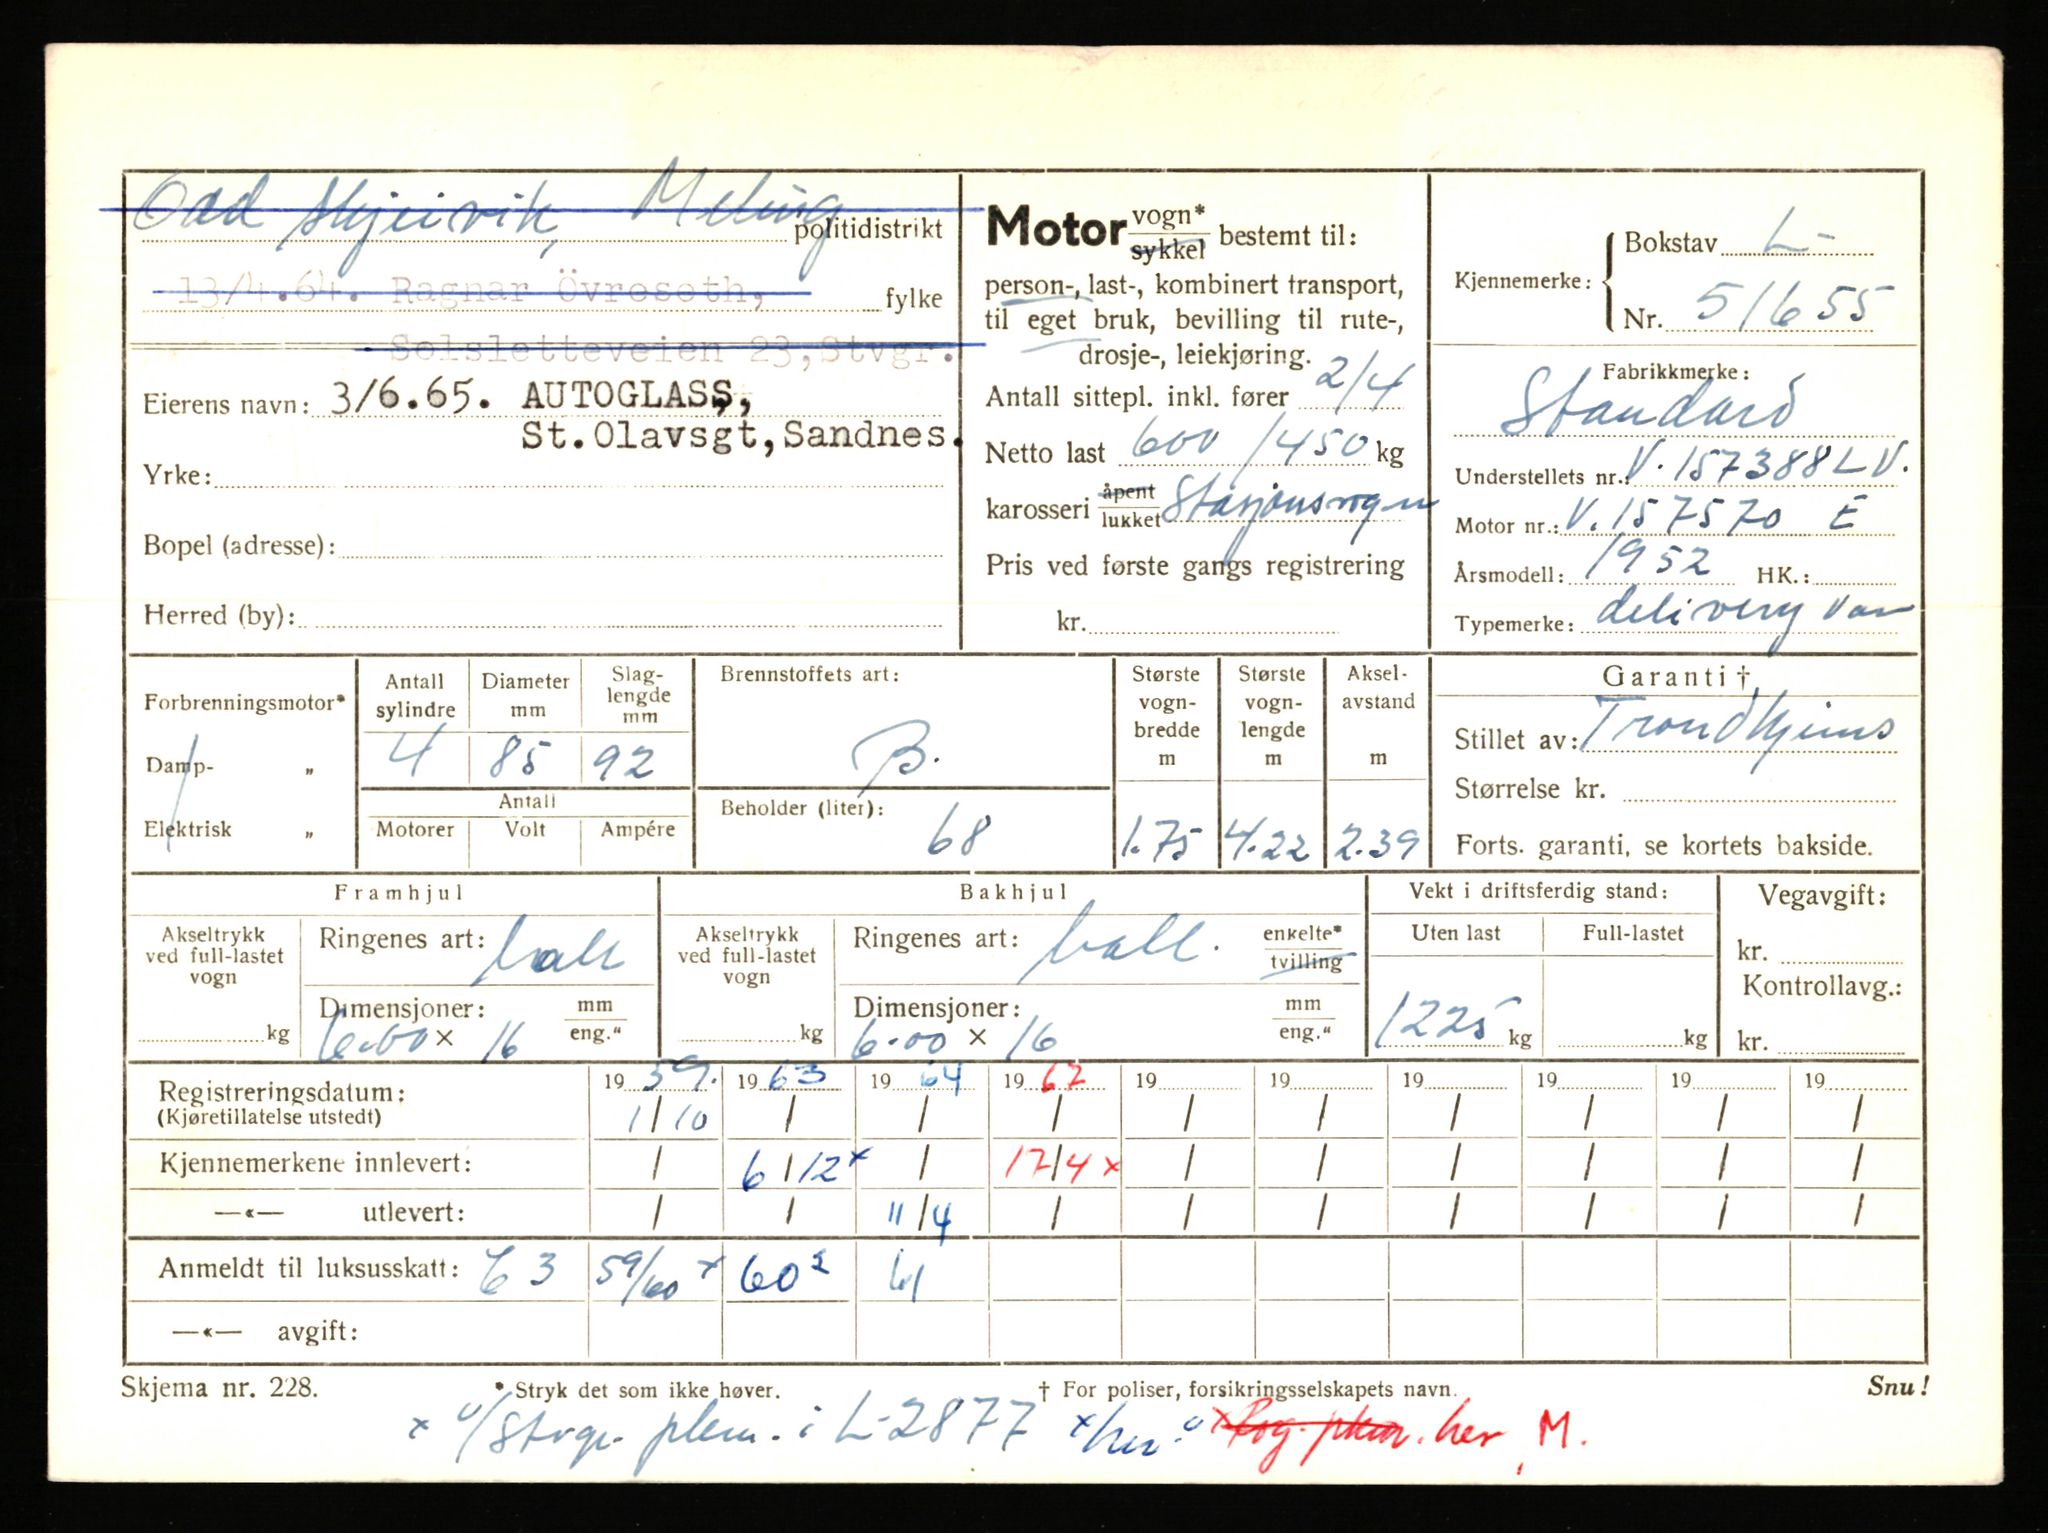 Odd Skjeivik, Meling politidistrikt
13/4.64. Ragnar Övreseth, fylke
Solsletteveien 23, Stvgr.
Eierens navn: 3/6.65. AUTOGLASS,
St.Olavsgt, Sandnes.
Yrke:
Bopel (adresse):
Herred (by):
Motor vogn* sykkel bestemt til:
person-, last-, kombinert transport,
til eget bruk, bevilling til rute-,
drosje-, leiekjøring.
Antall sittepl. inkl. fører 2/4
Netto last 600 /450 kg
karosseri åpent lukket Stasjonsvogn
Pris ved første gangs registrering
kr.
Kjennemerke: Bokstav L-
Nr. 51655
Fabrikkmerke:
Standard
Understellets nr.: V. 157388 LV.
Motor nr.: V. 157570 E
Årsmodell: 1952 HK.:
Typemerke: delivery van
Forbrenningsmotor*
Damp- „
Elektrisk „
Antall sylindre 4
Diameter mm 85
Slag-lengde mm 92
Antall
Motorer Volt Ampére
Brennstoffets art:
B.
Beholder (liter):
68
Største vogn-bredde m 1.75
Største vogn-lengde m 4.22
Aksel-avstand m 2.39
Garanti †
Stillet av: Trondhjems
Størrelse kr.
Forts. garanti, se kortets bakside.
Framhjul
Akseltrykk ved full-lastet vogn kg
Ringenes art: ball
Dimensjoner: mm eng."
6.00 × 16
Bakhjul
Akseltrykk ved full-lastet vogn kg
Ringenes art: ball. enkelte* tvilling
Dimensjoner: mm eng."
6.00 × 16
Vekt i driftsferdig stand:
Uten last Full-lastet
1225 kg kg
Vegavgift:
kr.
Kontrollavg.:
kr.
Registreringsdatum: 19 59. 19 63 19 64 19 67 19 19 19 19 19 19
(Kjøretillatelse utstedt) 1/10 / / / / / / / / /
Kjennemerkene innlevert: / 6/12 x / 17/4 x / / / / / /
—«— utlevert: / / 11/4 / / / / / / /
Anmeldt til luksusskatt: 63 59/60 x 60² 61
—«— avgift:
Skjema nr. 228. * Stryk det som ikke høver. † For poliser, forsikringsselskapets navn. Snu!
x u/Stvgr. plom. i L-2877 x/her. x Rog. plom. her M.